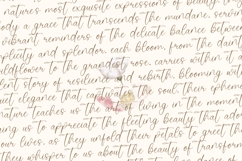 natures most exquisite expressions of beauty.
body a grace that transcends the mundane, serving
vibrant reminders of the delicate balance between
simplicity and splendor. each bloom, from the dainti
wildflower to the grandest rose, carries within it a
lent story of resilience and rebirth, blooming with
quiet elegance that captivates the soul. their ephemer
nature teaches us the art of living in the moment
ing us to appreciate the fleeting beauty that adorn
our lives. as they unfold their petals to greet
they whisper to us about the beauty of transform